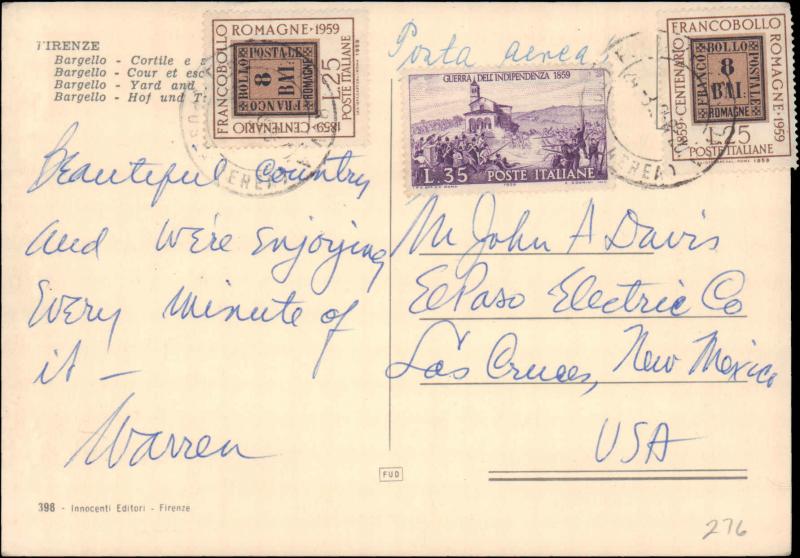 FIRENZE
Bargello - Cortile e
Bargello - Cour et
Bargello - Yard and
Bargello - Hof und
FRANCOBOLLO ROMAGNE·1959
FRANCO BOLLO POSTALE ROMAGNE
8 BAI.
1859·CENTENARIO
L.25 POSTE ITALIANE
Posta aerea
GUERRA DELL'INDIPENDENZA 1859
L.35 POSTE ITALIANE
1859·CENTENARIO FRANCOBOLLO ROMAGNE·1959
FRANCO BOLLO POSTALE ROMAGNE
8 BAI.
L.25
POSTE ITALIANE
Beautiful Country
and we're Enjoying
Every minute of
it —
Warren
Mr John A Davis
El Paso Electric Co
Las Cruces, New Mexico
USA
FUD
398 - Innocenti Editori - Firenze
276